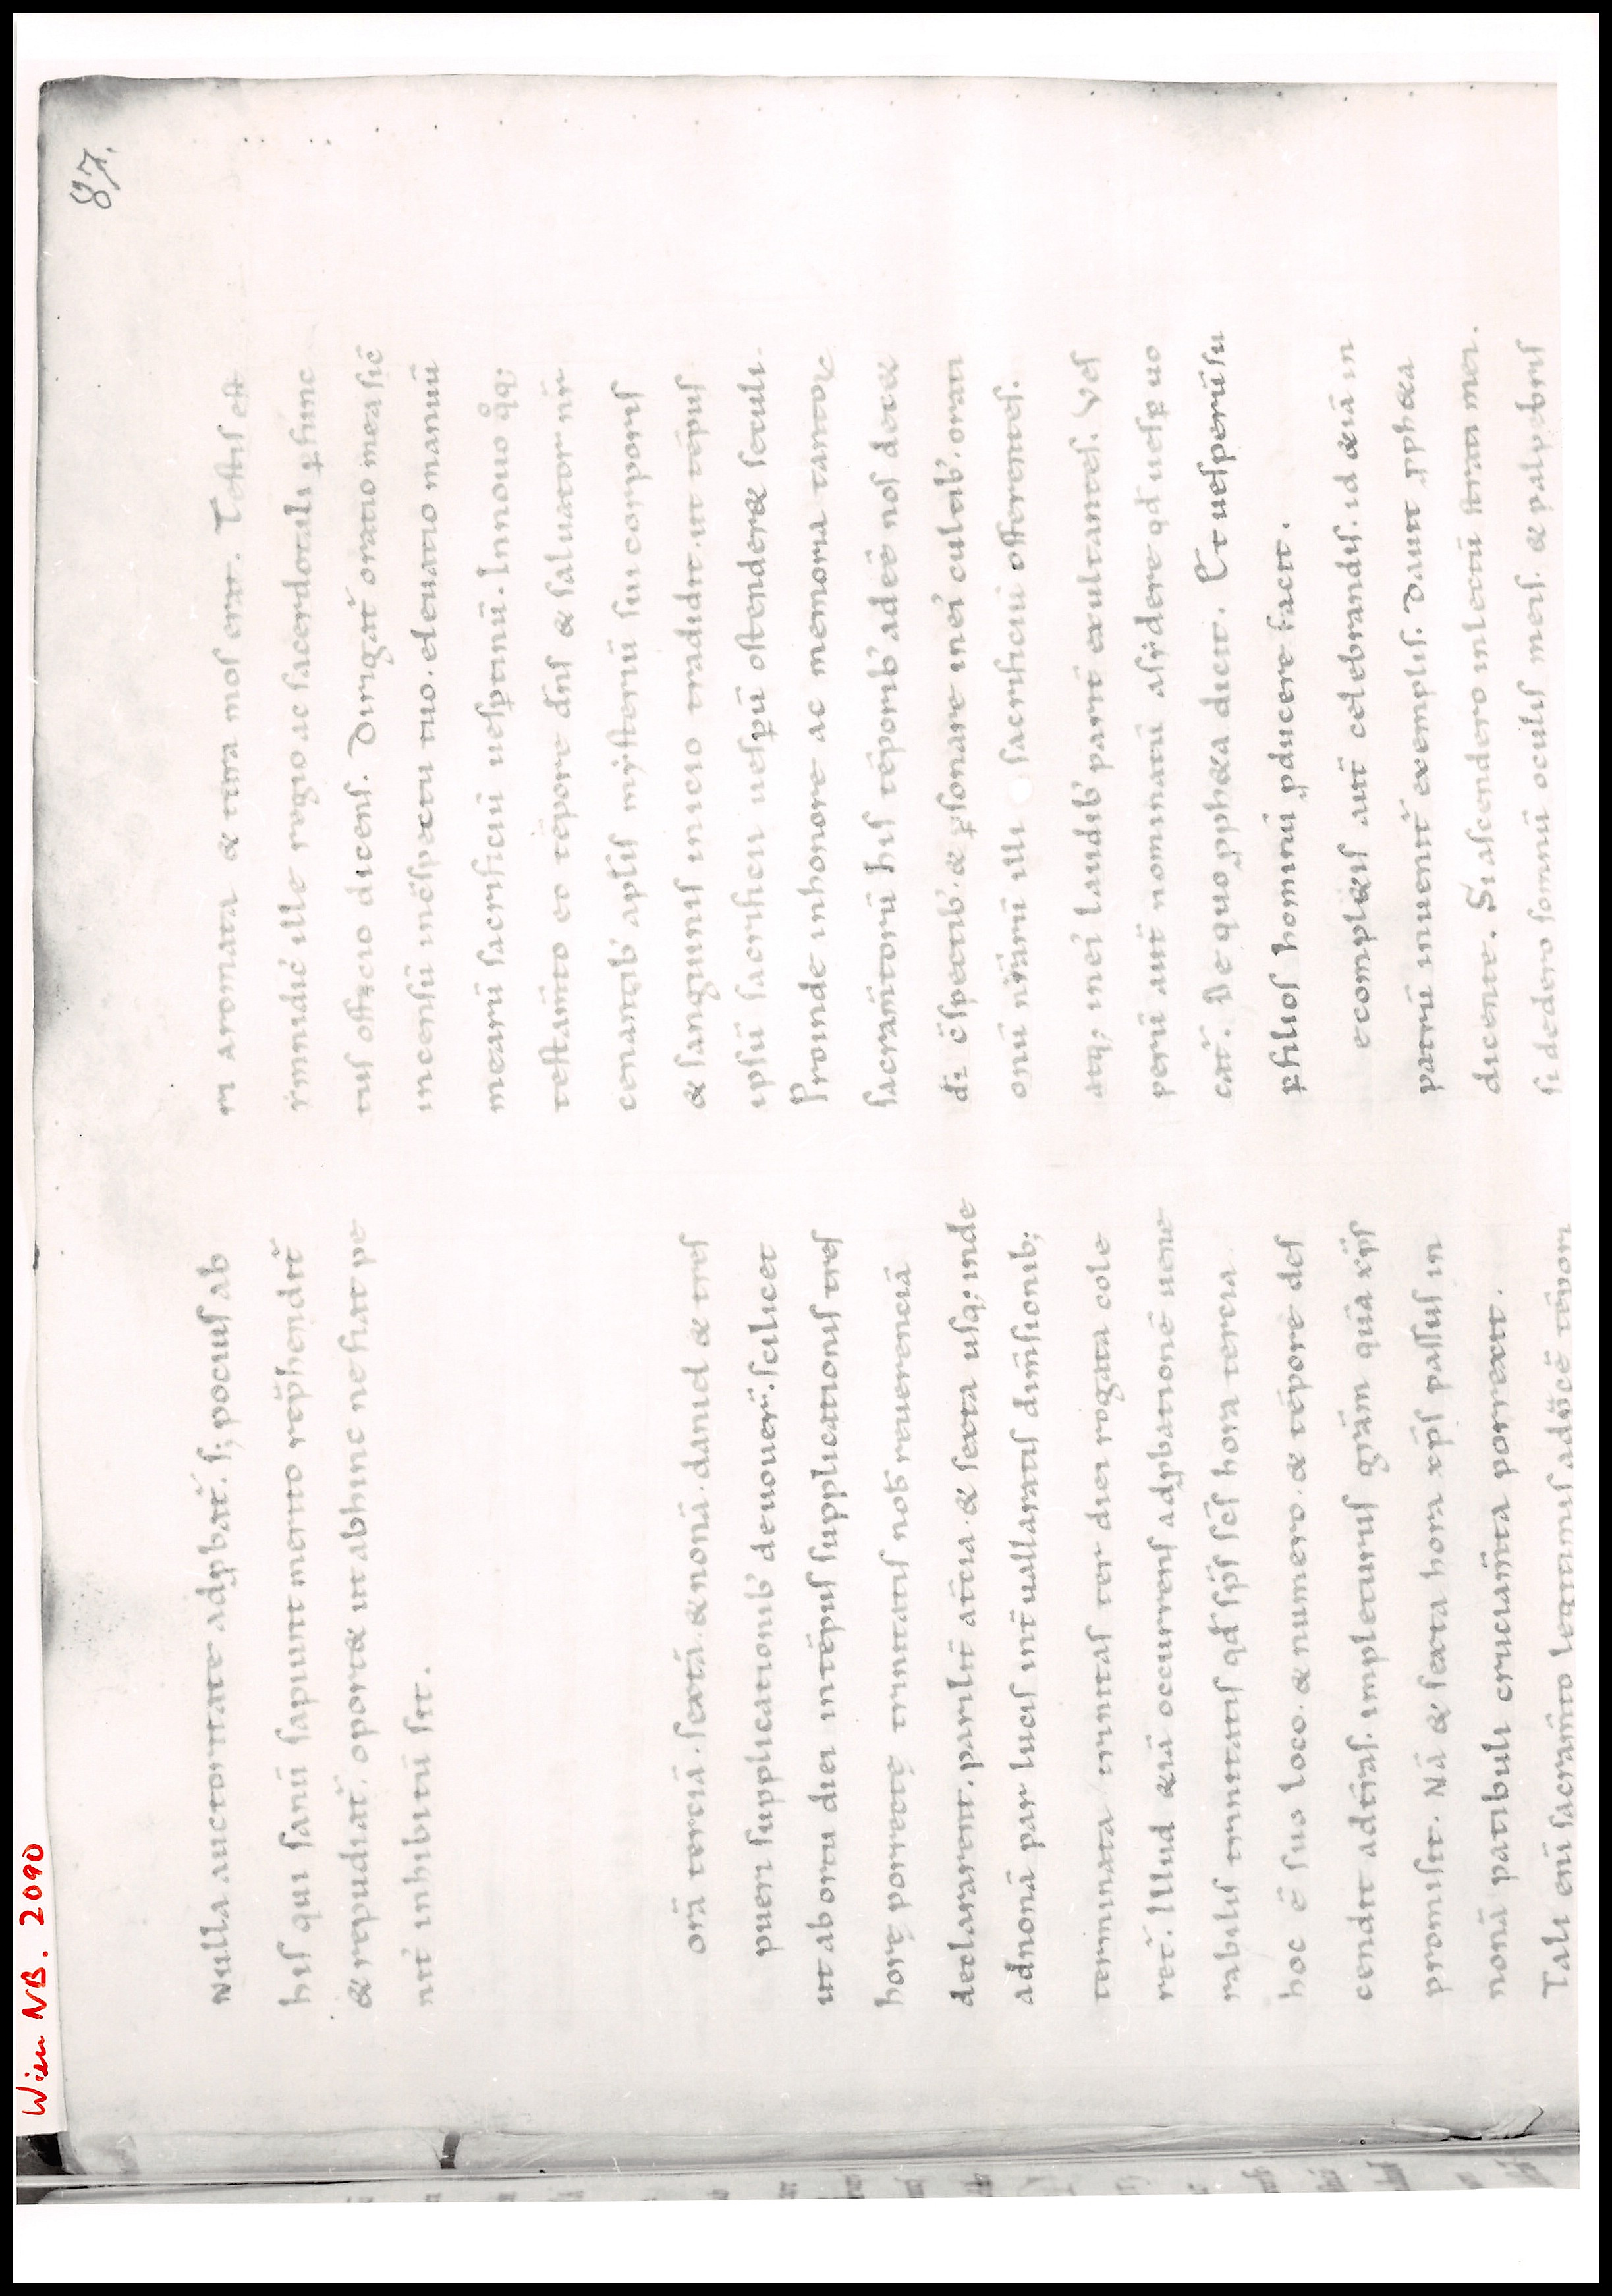 Wien NB. 2090
87.
Nulla auctoritate adpbat̄. s; pocius ab
his qui sanū sapiunt merito rep̄hendit̄
& repudiat̄. oport& ut abhinc ne fiat pe
nit' inhibitū sit.
orā terciā. sextā. & nonā. danihel & tres
pueri supplicationib' deuouer̄. scilicet
ut ab ortu diei in tēpus supplicationis tres
horę porrectę trinitatis nob̄ reuerenciā
declararent. parilit̄ at̄cia. & sexta usq; inde
ad nonā par lucis int̄uallaratis dim̄sionib;
terminata trinitas ter diei rogata cole
ret̄. Illud &iā occurrens adpbationē uene
rabilis trinitatis qd̄ sp̄s sc̄s hora tercia
hoc ē suo loco. & numero. & tēpore des
cendit ad t̄ras. impleturus gr̄am quā xp̄s
promisit. Nā & sexta hora xp̄s passus in
nonā patibuli cruciam̄ta porrexit.
Tali enī sacram̄to
ri aromata & tura mos erat. Testis est
ymnidic' ille regio ac sacerdotali p̱ func
tus officio dicens. Dirigat̄ oratio mea sic̄
incensū in c̄spectu tuo. eleuatio manuū
mearū sacrificiū uesp̱tinū. In nouo q̊q;
testam̄to eo tēpore dn̄s & saluator nr̄
cenantib' aplis mysteriū sui corporis
& sanguinis inicio tradidit. ut tēpus
ipsū sacrificii uesp̱ū ostender& seculi.
Proinde in honore ac memoria tantoꝝ
sacram̄torū his tēporib' adeē nos dec&
dī c̄spectib'. & p̱sonare in ei' cultib'. orati
onū nr̄arū illi sacrificiū offerentes.
atq; in ei' laudib' parit̄ exultantes. Ves
perū aut̄ nominatū a sydere qd̄ uesp̱ uo
cat̄. De quo ꝓph&a dicit. Et uesperū su
p̱ filios hominū ꝓducere facit.
e complꝫis aut̄ celebrandis. id &iā in
patrū inuenit̄ exemplis. Dauit ꝓph&a
dicente. Si ascendero in lectū strati mei.
si dedero somnū oculis meis. & palpebris